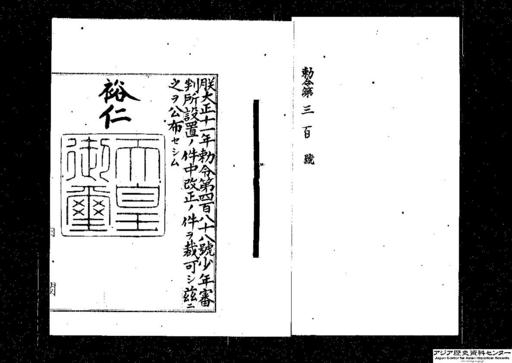 勅令第三百號
朕大正十一年勅令第四百八十八號少年審
判所設置ノ件中改正ノ件ヲ裁可シ茲ニ
之ヲ公布セシム
裕仁
天皇
御璽
内閣
アジア歴史資料センター
Japan Center for Asian Historical Records